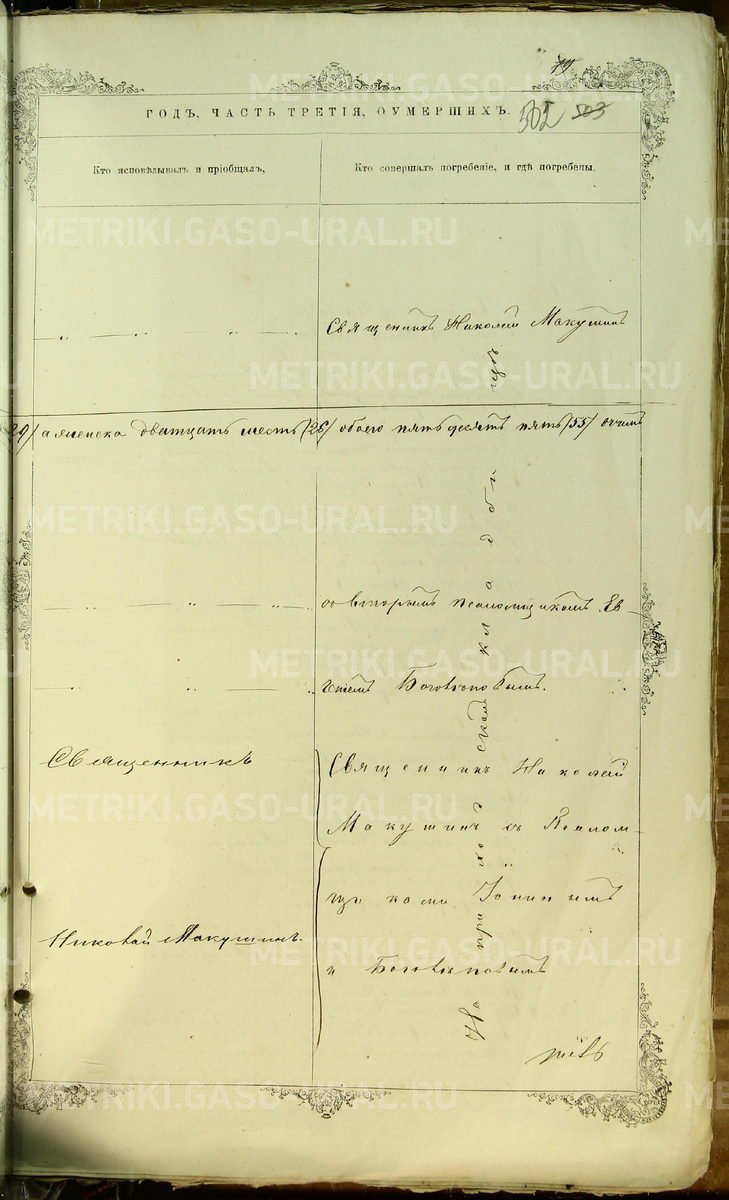 79
ГОДЪ, ЧАСТЬ ТРЕТІЯ, ОУМЕРШИХЪ.
502 503
Кто исповѣдывалъ и пріобщалъ,
Кто совершалъ погребеніе, и гдѣ погребены.
Священникъ Николай Макушинъ
29/ а женска дватцать шесть /26/ обоего пятьдесятъ пять /55/
со вторымъ псаломщикомъ
Священникъ
Священникъ Николай
Макушинъ съ Псалом-
щиками
Николай Макушинъ.
и
На приходскомъ кладби
METRIKI.GASO-URAL.RU